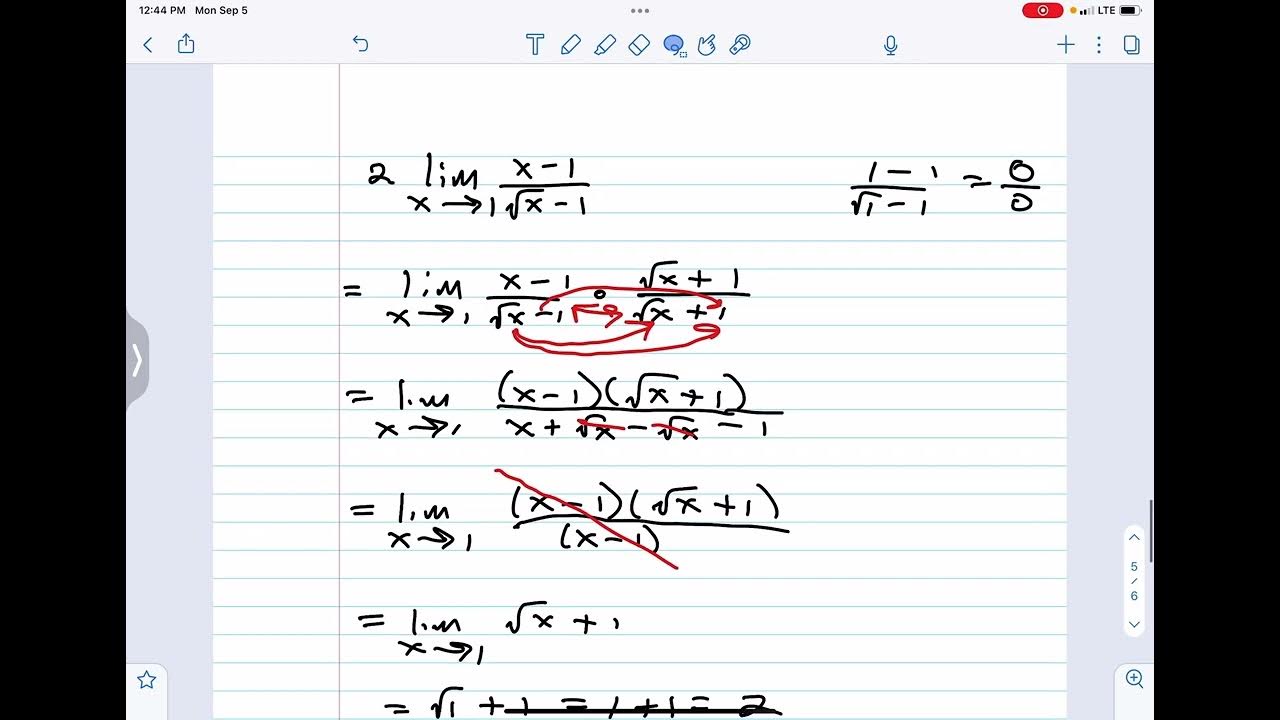 12:44 PM Mon Sep 5
LTE
T
2 lim x→1 (x - 1)/(√x - 1)
(1 - 1)/(√1 - 1) = 0/0
= lim x→1 (x - 1)/(√x - 1) · (√x + 1)/(√x + 1)
= lim x→1 (x - 1)(√x + 1)/(x + √x - √x - 1)
= lim x→1 (x - 1)(√x + 1)/(x - 1)
5
/
6
= lim x→1 √x + 1
= √1 + 1 = 1 + 1 = 2